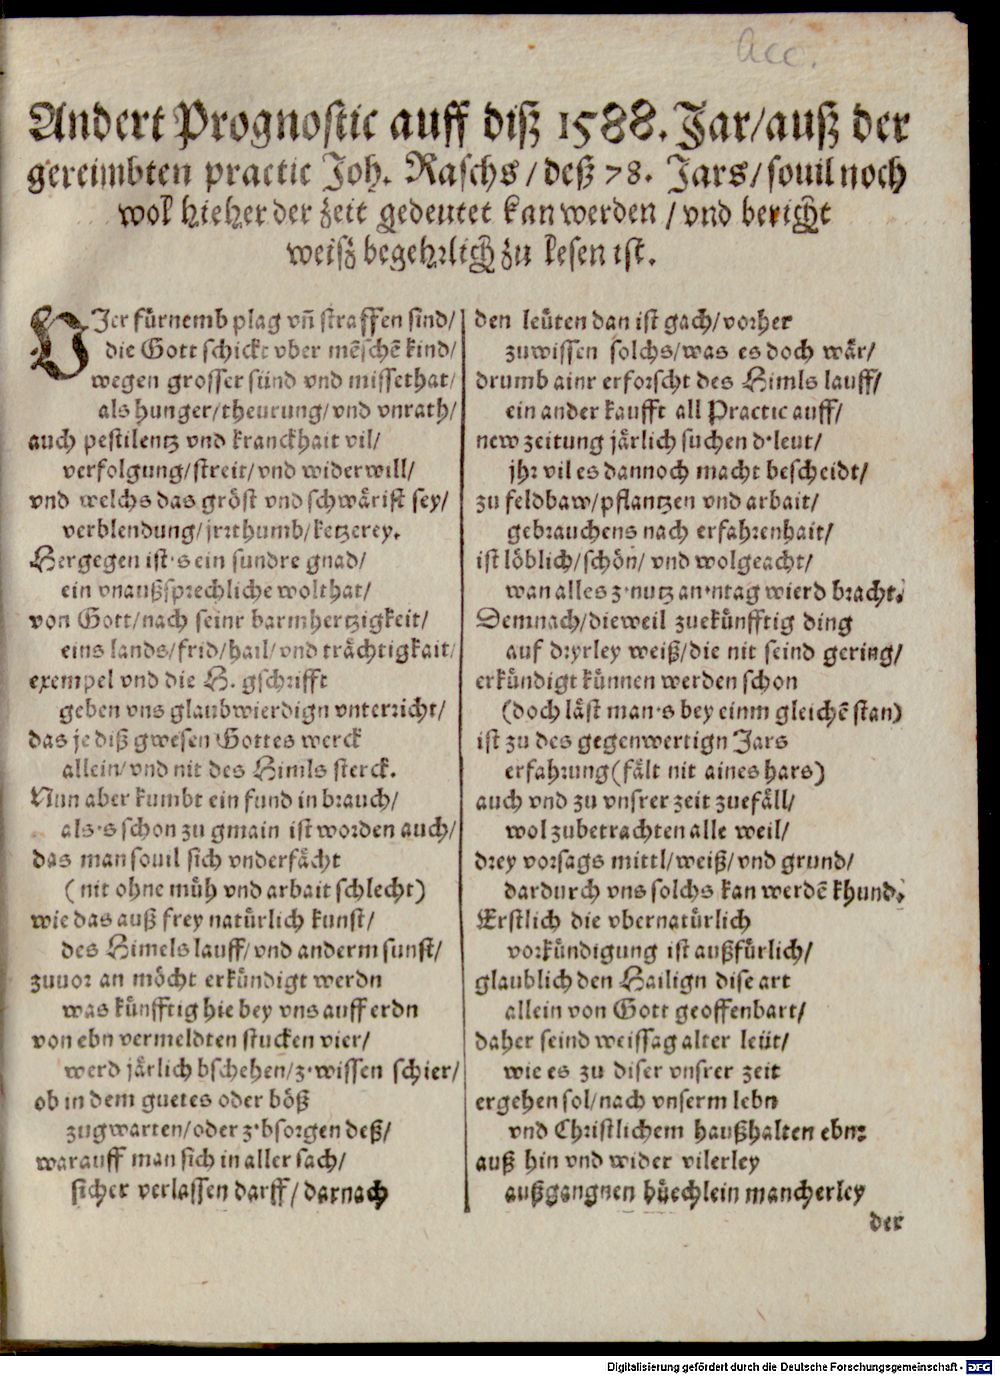 Acc.
Andert Prognostic auff diß 1588. Jar/auß der
gereimbten practic Joh. Raschs/deß 78. Jars/souil noch
wol hieher der zeit gedeutet kan werden/vnd bericht
weiß begehrlich zu lesen ist.
VJer fürnemb plag vñ straffen sind/
die Gott schickt vber mẽschẽ kind/
wegen grosser sünd vnd missethat/
als hunger/theurung/vnd vnrath/
auch pestilentz vnd kranckhait vil/
verfolgung/streit/vnd widerwill/
vnd welchs das gröst vnd schwärist sey/
verblendung/jrrthumb/ketzerey.
Hergegen ist's ein sundre gnad/
ein vnaußsprechliche wolthat/
von Gott/nach seinr barmhertzigkeit/
eins lands/frid/hail/vnd trächtigkait/
exempel vnd die H. gschrifft
geben vns glaubwierdign vnterricht/
das je diß gwesen Gottes werck
allein/vnd nit des Himls sterck.
Nun aber kumbt ein fund in brauch/
als's schon zu gmain ist worden auch/
das man souil sich vnderfächt
(nit ohne müh vnd arbait schlecht)
wie das auß frey natürlich kunst/
des Himels lauff/vnd anderm sunst/
zuuor an möcht erkündigt werdn
was künfftig hie bey vns auff erdn
von ebn vermeldten stucken vier/
werd järlich bschehen/z'wissen schier/
ob in dem guetes oder böß
zugwarten/oder z'bsorgen deß/
warauff man sich in aller sach/
sicher verlassen darff/darnach
den leüten dan ist gach/vorher
zuwissen solchs/was es doch wär/
drumb ainr erforscht des Himls lauff/
ein ander kaufft all Practic auff/
new zeitung järlich suchen d'leut/
jhr vil es dannoch macht bescheidt/
zu feldbaw/pflantzen vnd arbait/
gebrauchens nach erfahrenhait/
ist löblich/schön/vnd wolgeacht/
wan alles z'nutz an'ntag wierd bracht.
Demnach/dieweil zuekünfftig ding
auf dryrley weiß/die nit seind gering/
erkündigt künnen werden schon
(doch läst man's bey einm gleichẽ stan)
ist zu des gegenwertign Jars
erfahrung(fält nit aines hars)
auch vnd zu vnsrer zeit zuefäll/
wol zubetrachten alle weil/
drey vorsags mittl/weiß/vnd grund/
dardurch vns solchs kan werdẽ khund.
Erstlich die vbernatürlich
vorkündigung ist außfürlich/
glaublich den Hailign dise art
allein von Gott geoffenbart/
daher seind weissag alter leüt/
wie es zu diser vnsrer zeit
ergehen sol/nach vnserm lebn
vnd Christlichem haußhalten ebn:
auß hin vnd wider vilerley
außgangnen büechlein mancherley
der
Digitalisierung gefördert durch die Deutsche Forschungsgemeinschaft - DFG